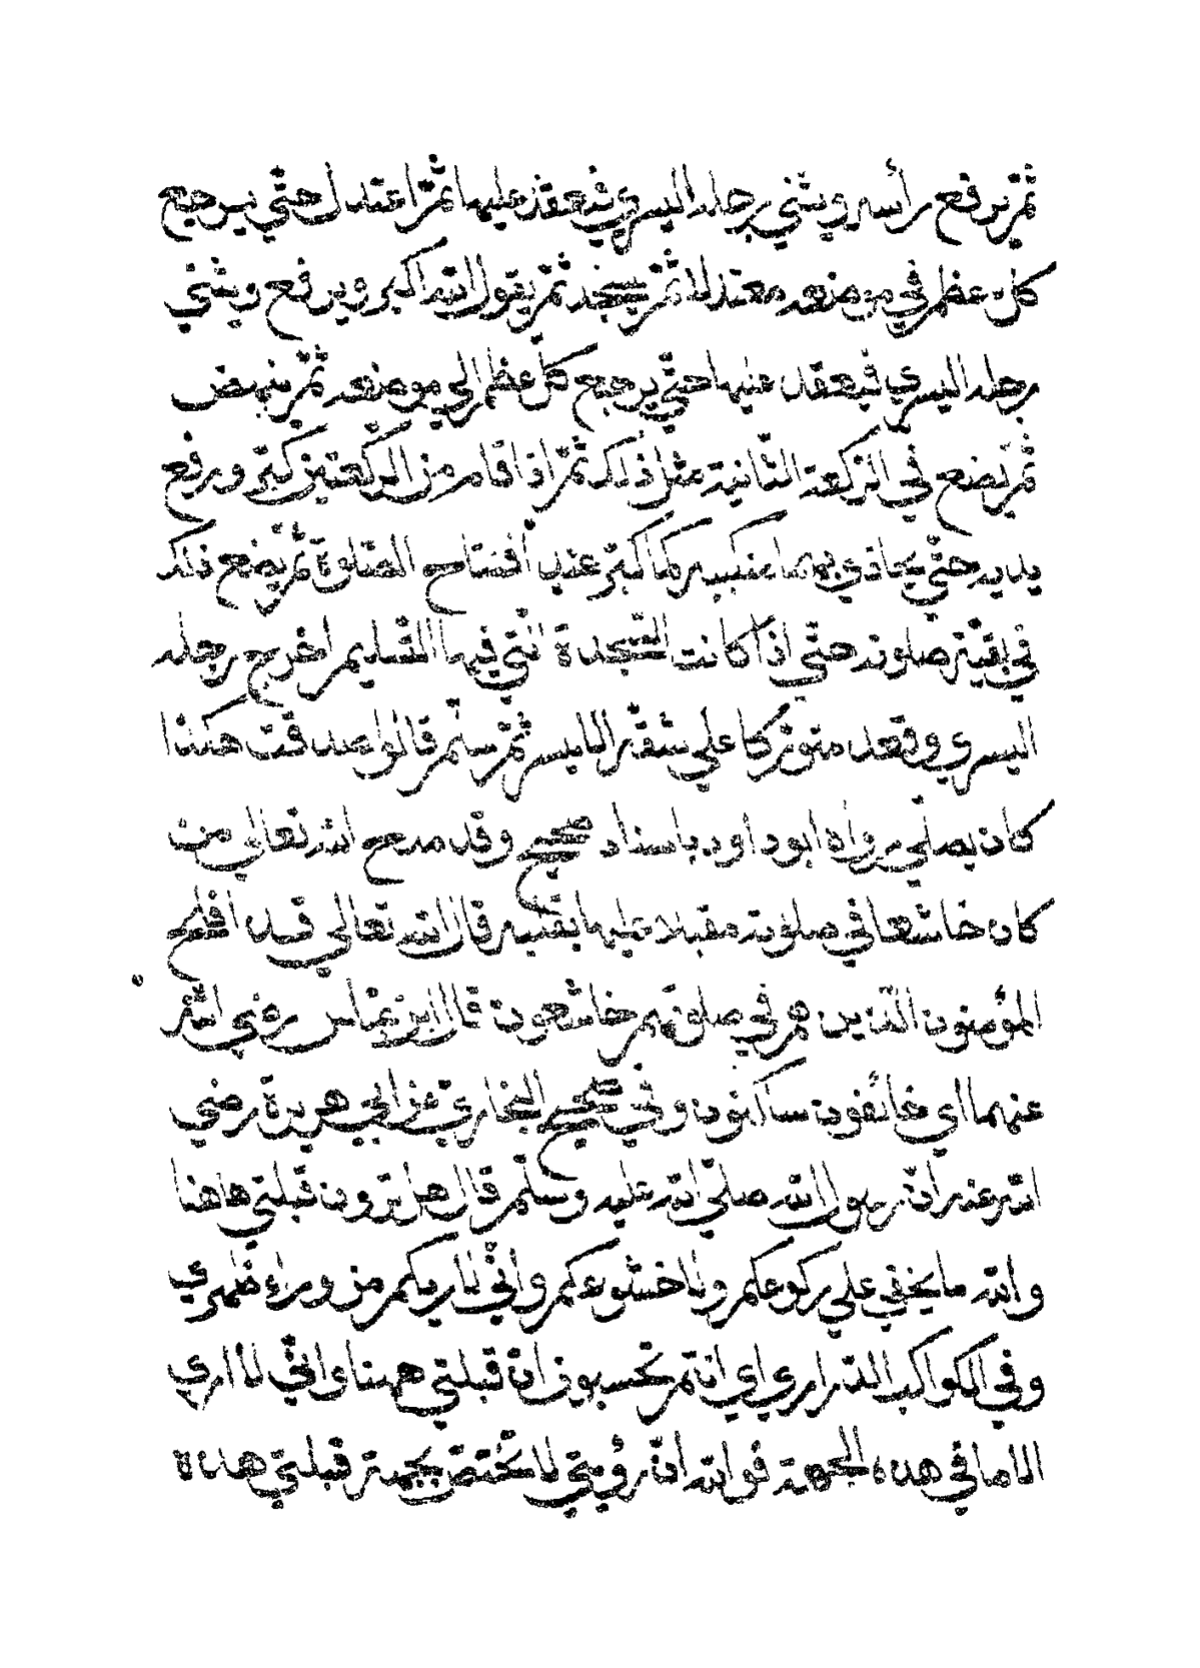 ثم يرفع رأسه ويثني رجله اليسري فيقعد عليها ثم اعتدل حتي يرجع
كل عظم في موضعه معتدلا ثم يسجد ثم يقول الله اكبر ويرفع ويثني
رجله اليسري فيقعد عليها حتي يرجع كل عظم الي موضعه ثم ينهض
ثم يضع في الركعة الثانية مثل ذلك ثم اذا قام من الركعتين كبر ورفع
يديه حتي يحاذي بهما منكبيه كما كبر عند افتتاح الصلوة ثم يضع ذلك
في بقية صلوته حتي اذا كانت السجدة التي فيها التسليم اخرج رجله
اليسري وقعد متوركا علي شقه الايسر ثم سلم قالوا صدقت هكذا
كان يصلي رواه ابو داود باسناد صحيح وقد مدح الله تعالي من
كان خاشعا في صلوته مقبلا عليها بقلبه قال الله تعالي قد افلح
المؤمنون الذين هم في صلوتهم خاشعون قال ابن عباس رضي الله
عنهما اي خائفون ساكنون وفي صحيح البخاري عن ابي هريرة رضي
الله عنه ان رسول الله صلي الله عليه وسلم قال هل ترون قبلتي هاهنا
والله ما يخفي علي ركوعكم ولا خشوعكم واني لاريكم من وراء ظهري
وفي الكواكب الدراري اي انتم تحسبون ان قبلتي ههنا واني لا اري
الا ما في هذه الجهة فوالله ان رؤيتي لا تختص بجهة قبلتي هذه